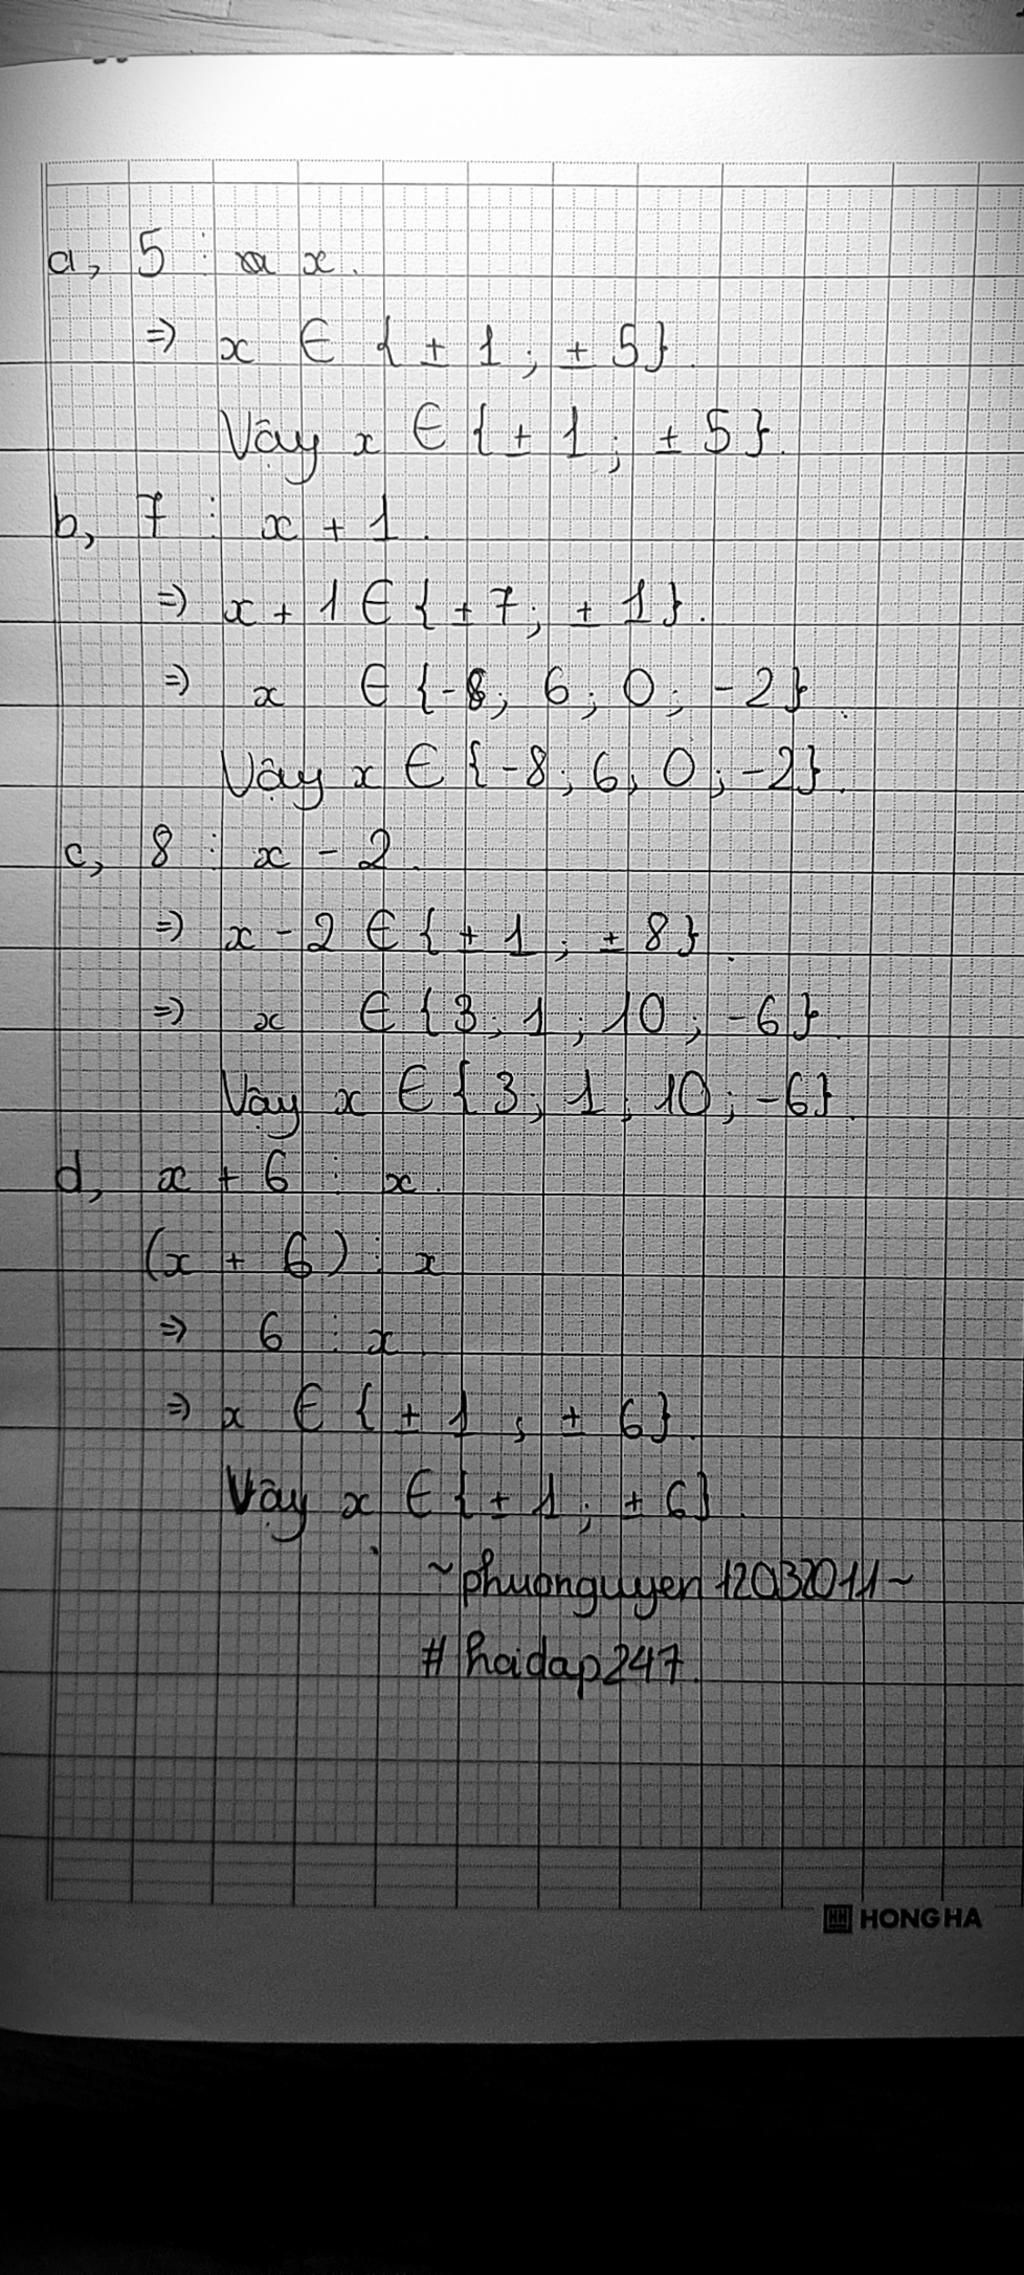 a, 5 ⋮ x.
=> x ∈ {± 1 ; ± 5}.
Vậy x ∈ {± 1 ; ± 5}.
b, 7 ⋮ x + 1.
=> x + 1 ∈ {± 7 ; ± 1}.
=> x ∈ {-8 ; 6 ; 0 ; -2}.
Vậy x ∈ {-8 ; 6 ; 0 ; -2}.
c, 8 ⋮ x - 2.
=> x - 2 ∈ {± 1 ; ± 8}.
=> x ∈ {3 ; 1 ; 10 ; -6}.
Vậy x ∈ {3 ; 1 ; 10 ; -6}.
d, x + 6 ⋮ x.
(x + 6) ⋮ x
=> 6 ⋮ x
=> x ∈ {± 1 ; ± 6}.
Vậy x ∈ {± 1 ; ± 6}.
~phuonguyen12032011~
#hoidap247.
HONG HA